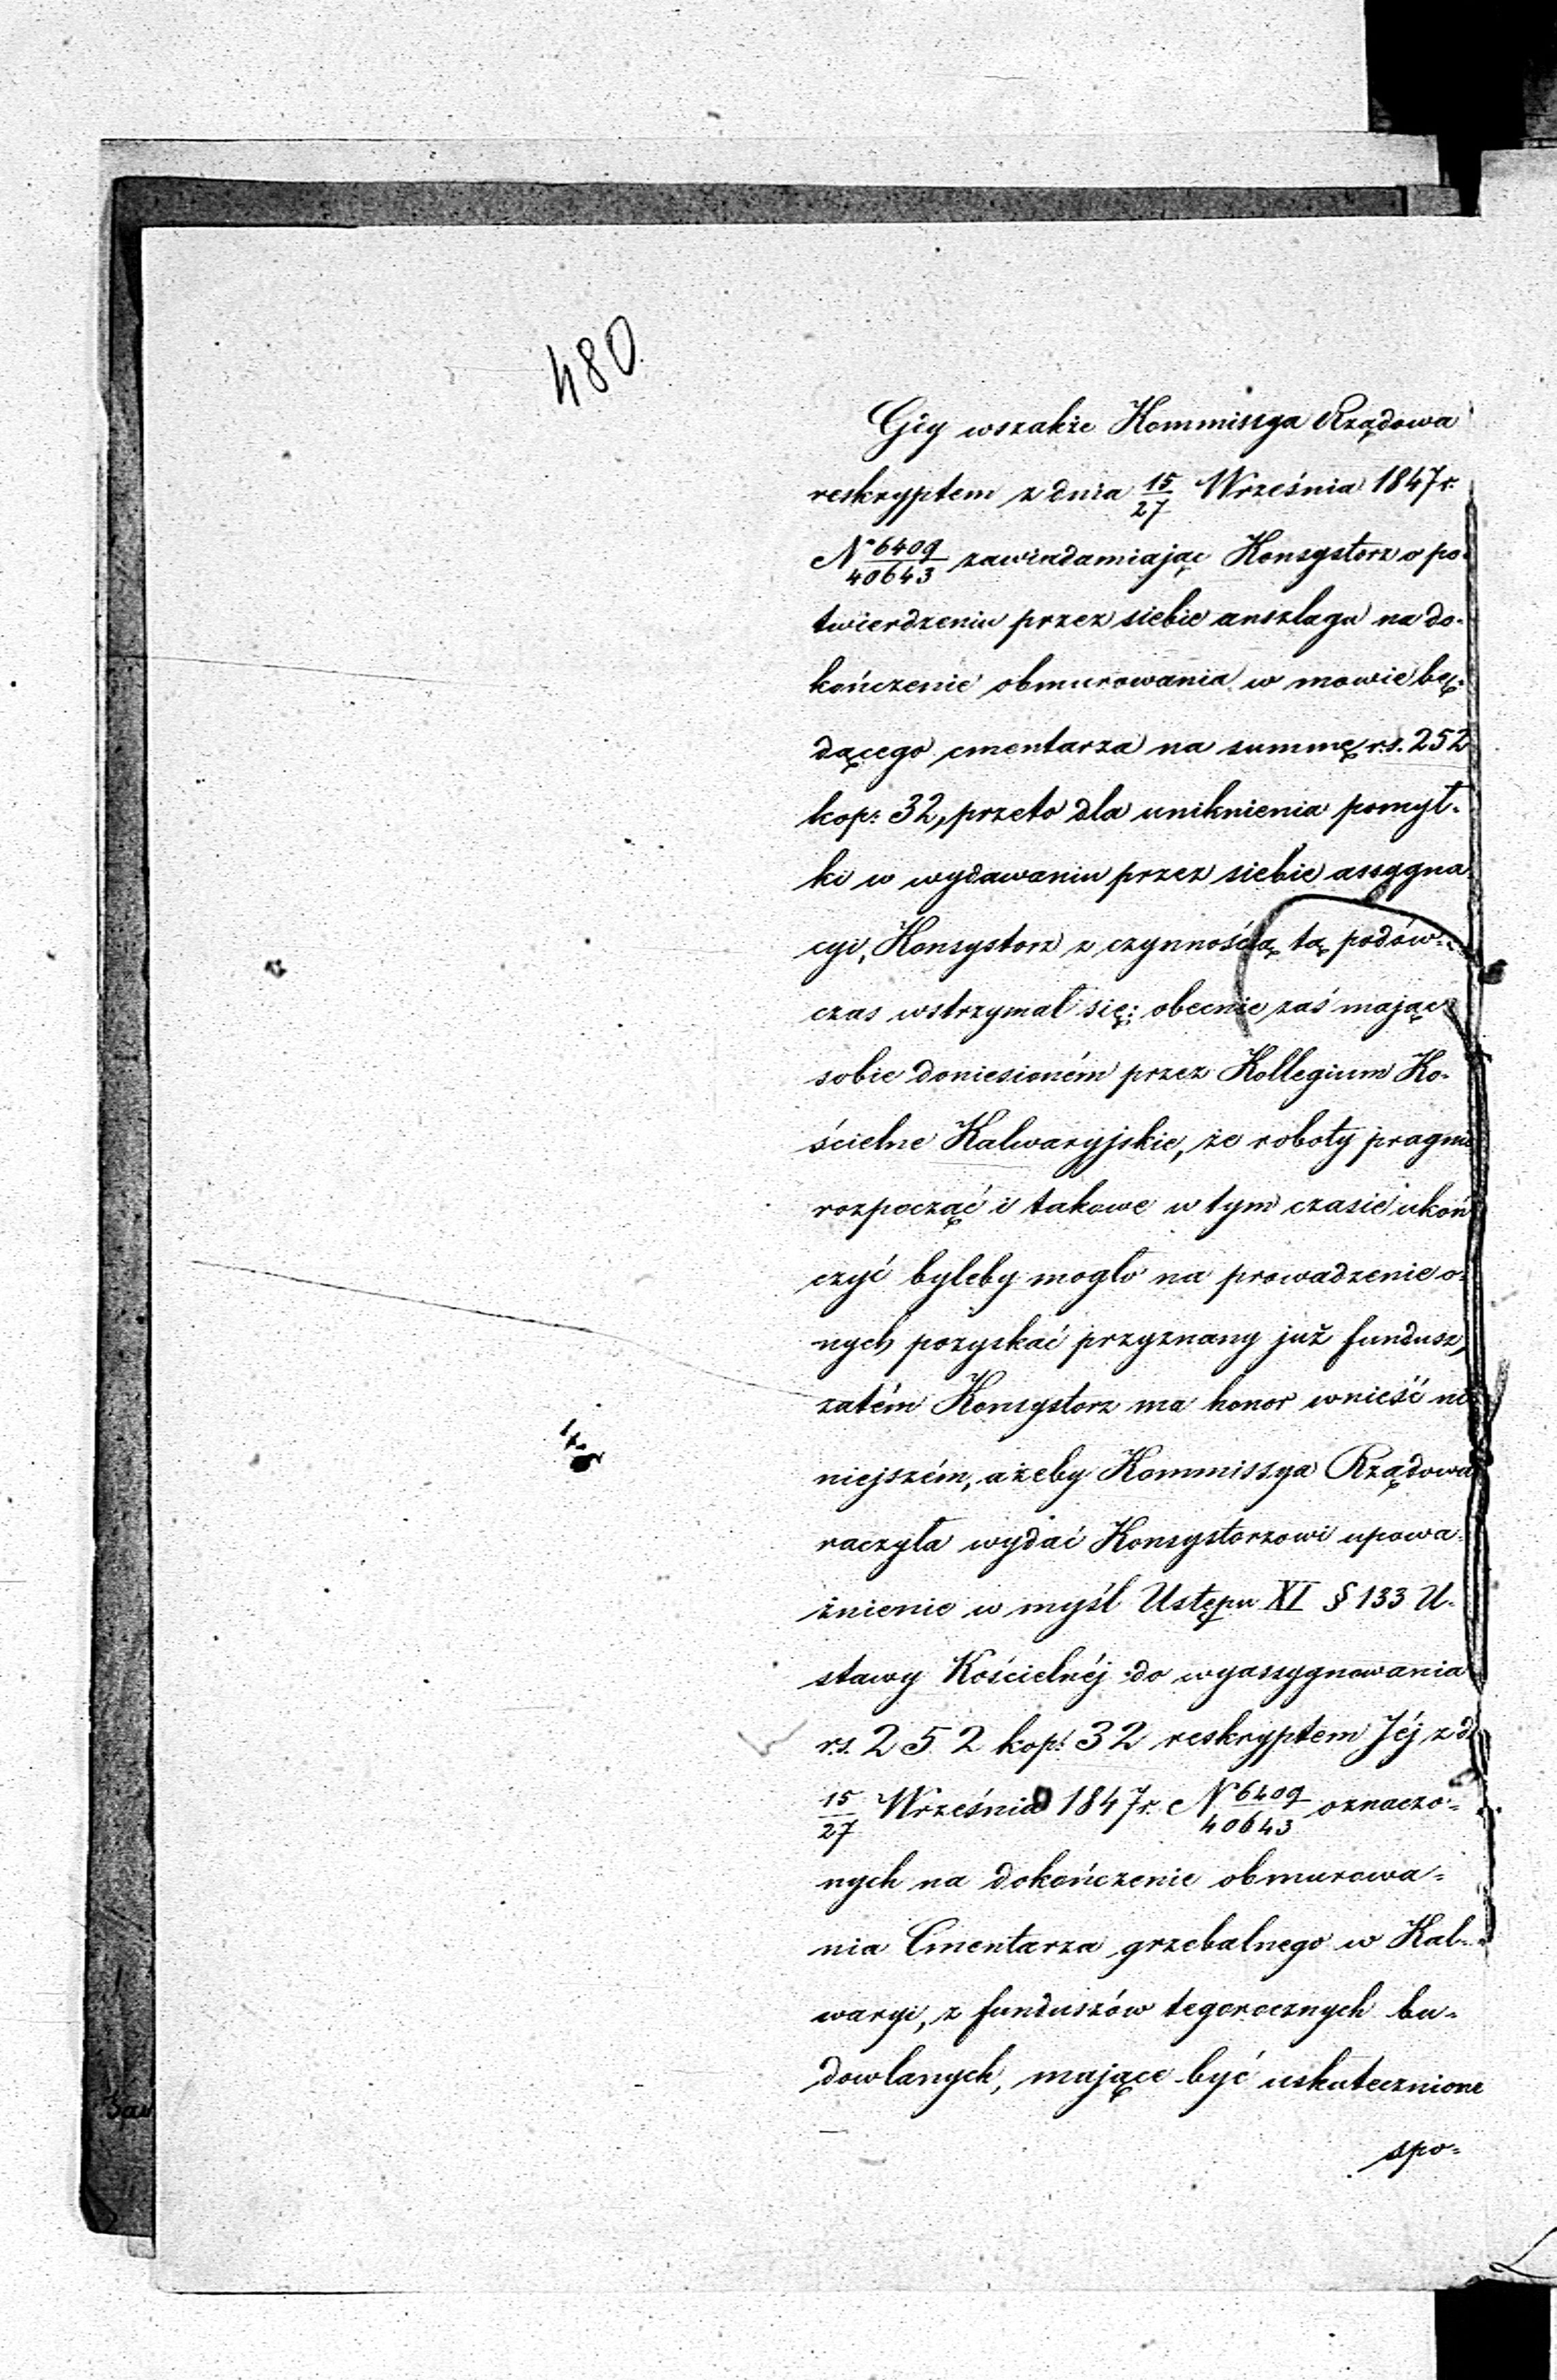 480
Gdy wszakże Kommissya Rządowa
reskryptem z dnia 15/27 Września 1847 r.
N° 6409/40643 zawiadamiając Konsystorz o po-
twierdzeniu przez siebie anszlagu na do-
kończenie obmurowania w mowie bę-
dącego cmentarza na summę rs. 252
kop: 32, przeto dla uniknienia pomył-
ki w wydawaniu przez siebie assygna-
cyi, Konsystorz z czynnością tą podów-
czas wstrzymał się; obecnie zaś mając
sobie doniesioném przez Kollegium Ko-
ścielne Kalwaryjskie, że roboty pragnie
rozpocząć i takowe w tym czasie ukoń
czyć byleby mogło na prowadzenie o-
nych pozyskać przyznany już fundusz,
zatém Konsystorz ma honor wnieść ni
niejszém, ażeby Kommissya Rządowa
raczyła wydać Konsystorzowi upowa-
żnienie w myśl Ustępu XI § 133 U-
stawy Kościelnéj do wyassygnowania
rs. 252 kop: 32 reskryptem Jéj z d.
15/27 Września 1847 r. N° 6409/40643 oznaczo=
nych na dokończenie obmurowa=
nia Cmentarza grzebalnego w Kal-
waryi, z funduszów tegorocznych bu-
dowlanych, mające być uskutecznione
spo=